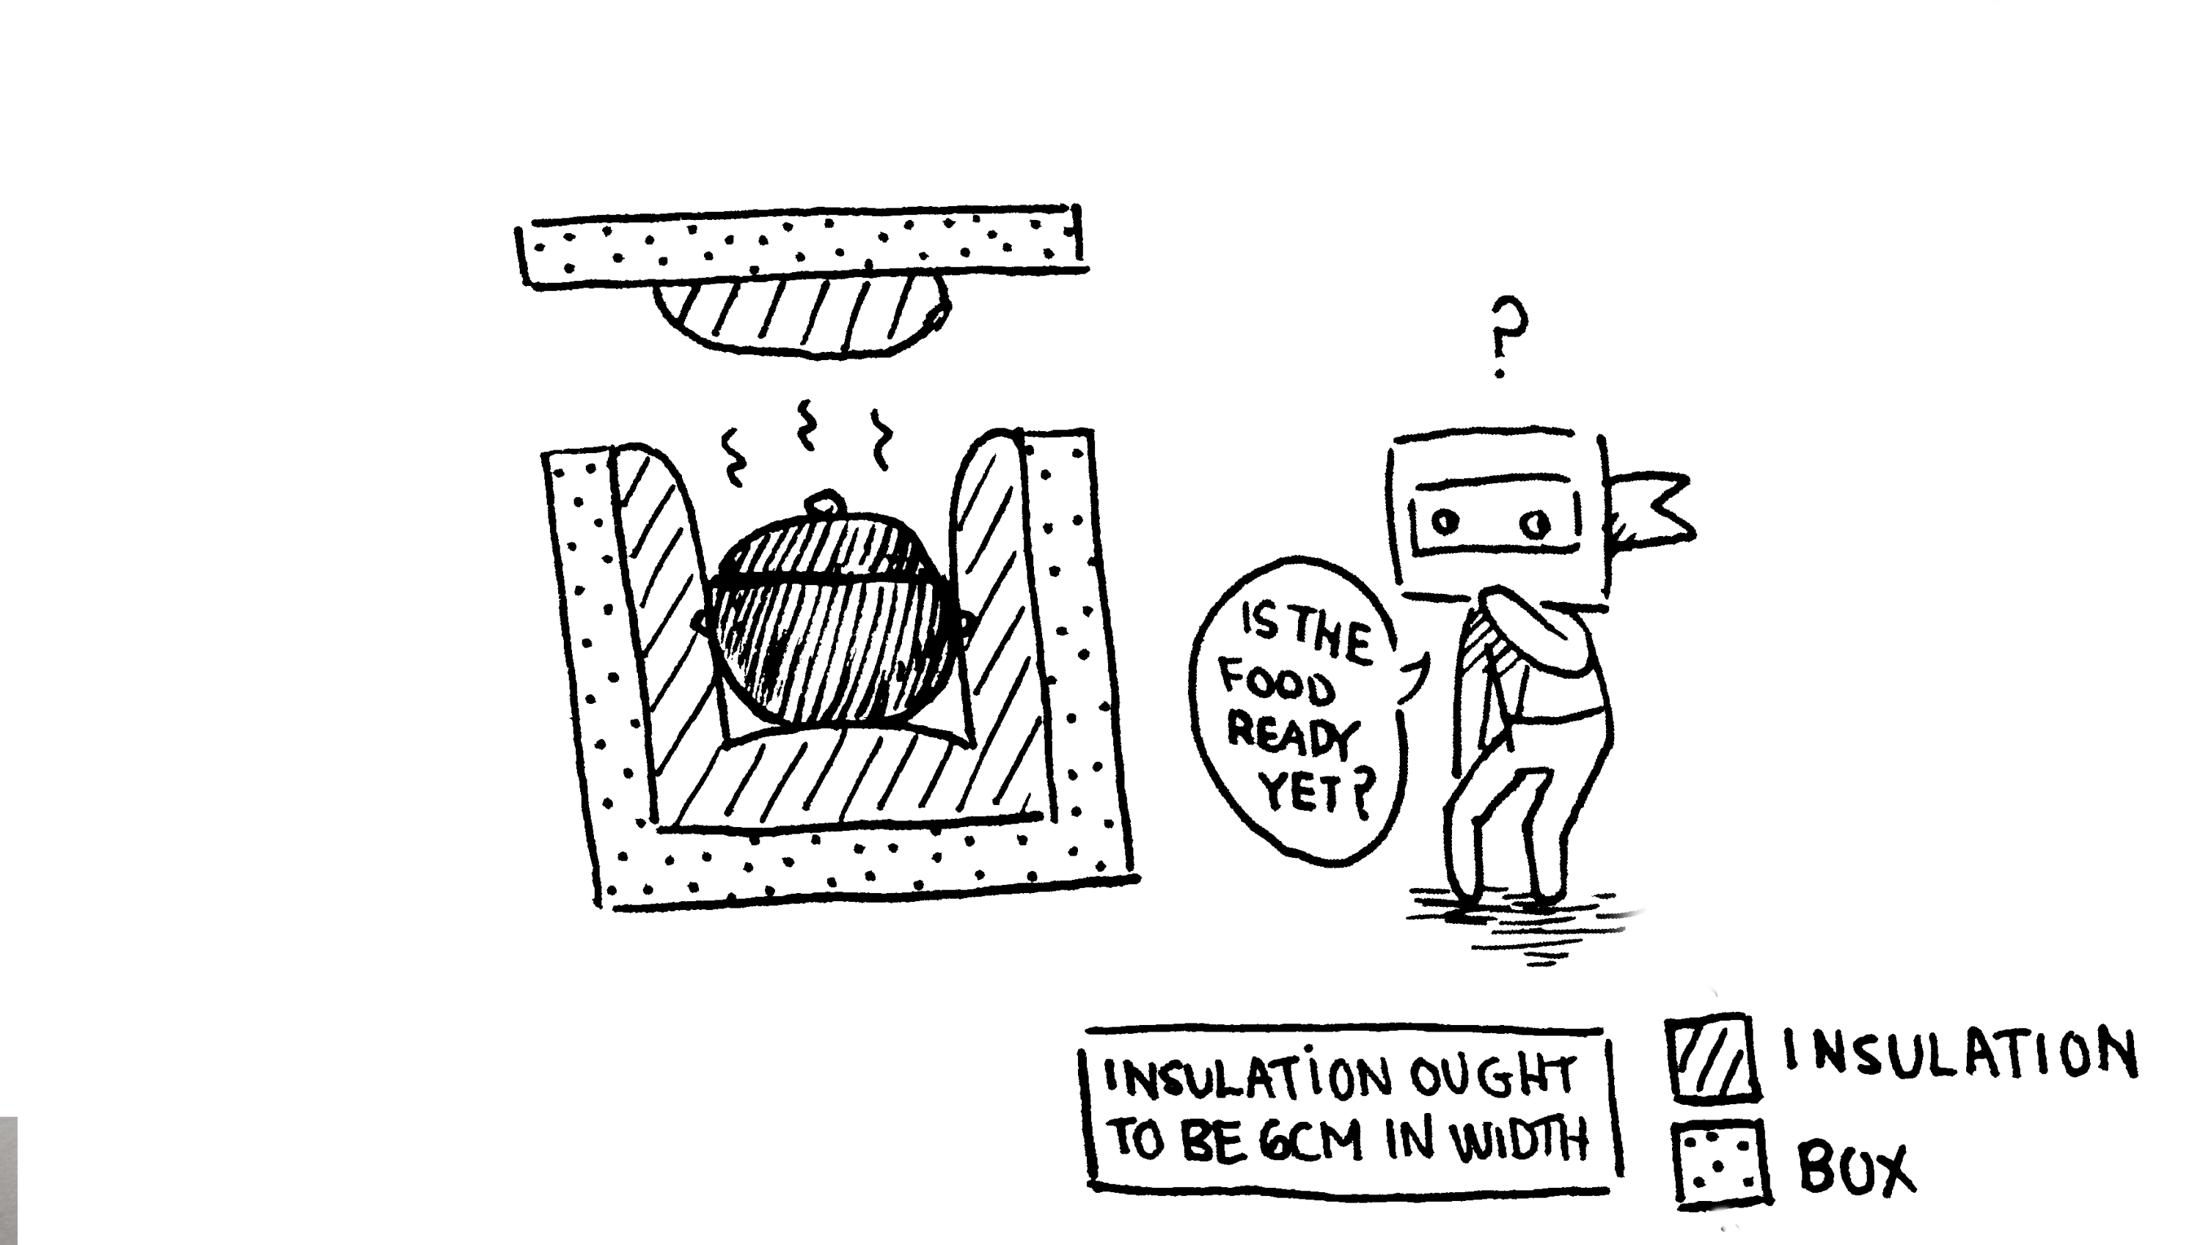 ?
IS THE
FOOD
READY
YET?
INSULATION OUGHT
TO BE 6CM IN WIDTH
INSULATION
BOX